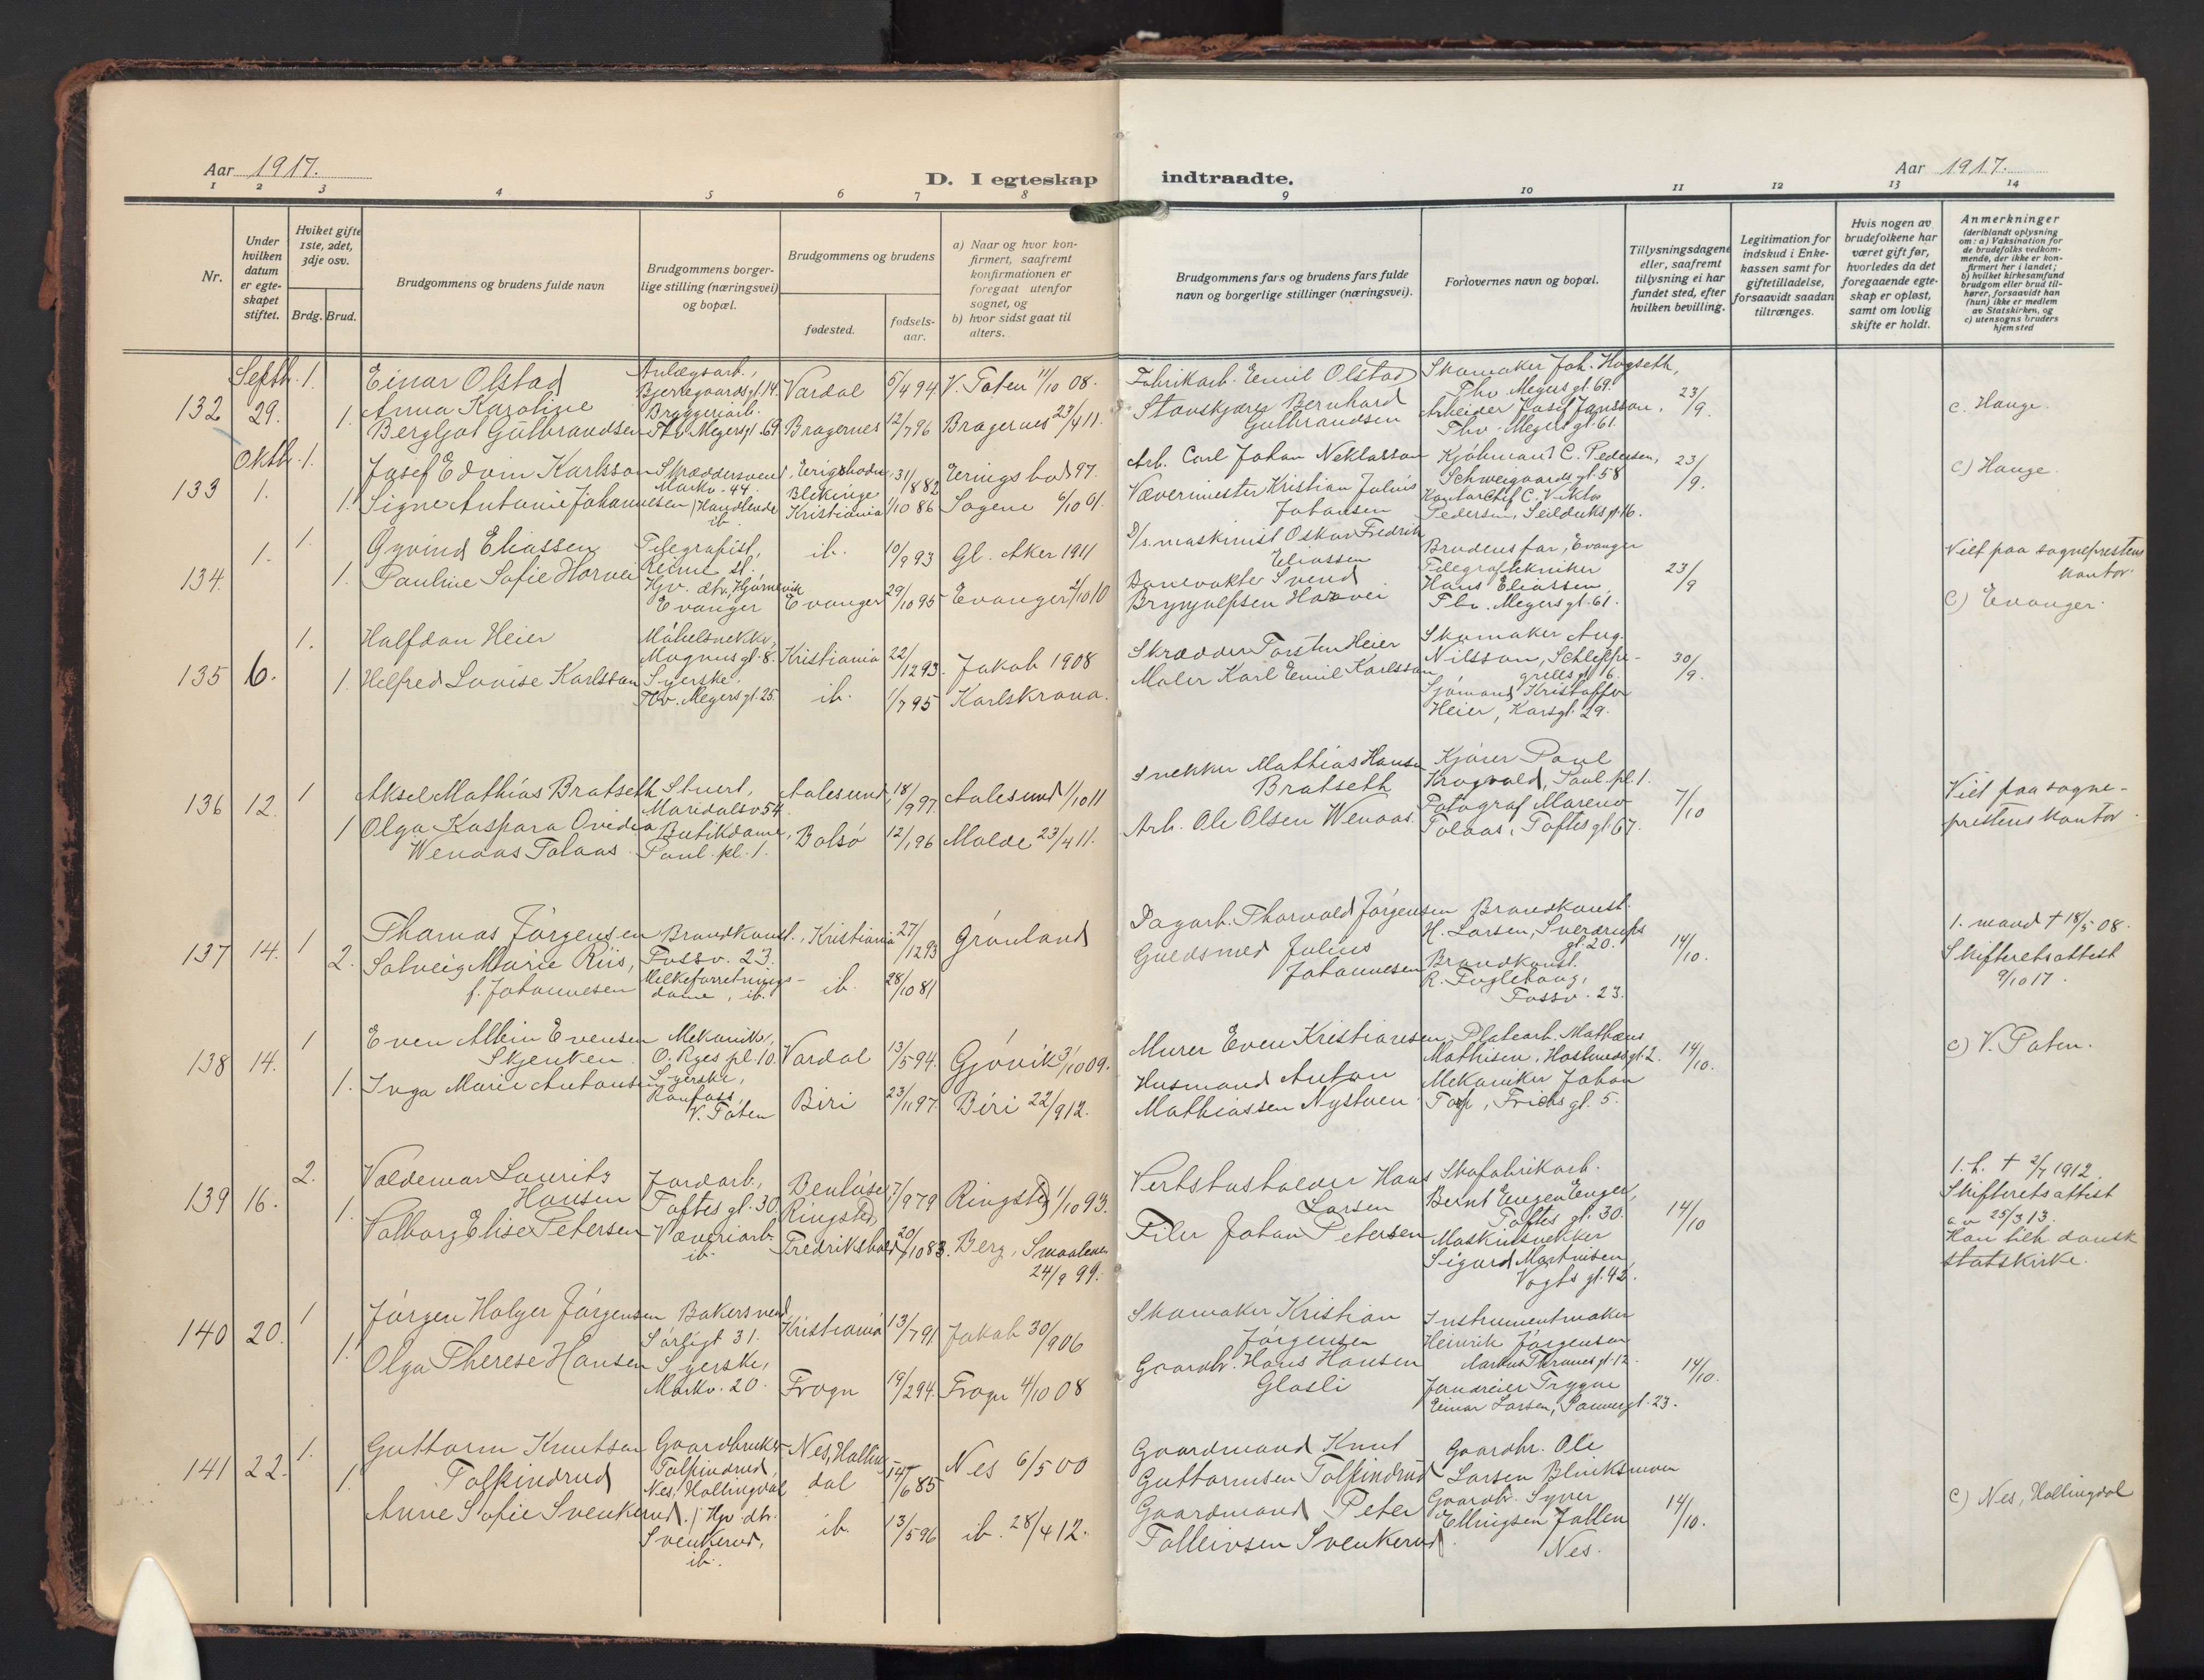 Aar 1917.
D. I egteskap indtraadte.
Aar 1917.
1 2 3 4 5 6 7 8 9 10 11 12 13 14
Nr.
Under hvilken datum er egte-skapet stiftet.
Hviket gifte 1ste, 2det, 3dje osv.
Brdg. Brud.
Brudgommens og brudens fulde navn
Brudgommens borger-lige stilling (næringsvei) og bopæl.
Brudgommens og brudens
fødested.
fødsels-aar.
a) Naar og hvor kon-firmert, saafremt konfirmationen er foregaat utenfor sognet, og
b) hvor sidst gaat til alters.
Brudgommens fars og brudens fars fulde navn og borgerlige stillinger (næringsvei).
Forlovernes navn og bopæl.
Tillysningsdagene eller, saafremt tillysning ei har fundet sted, efter hvilken bevilling.
Legitimation for indskud i Enke-kassen samt for giftetilladelse, forsaavidt saadan tiltrænges.
Hvis nogen av brudefolkene har været gift før, hvorledes da det foregaaende egte-skap er opløst, samt om lovlig skifte er holdt.
Anmerkninger
(deriblandt oplysning om: a) Vaksination for de brudefolks vedkom-mende, der ikke er kon-firmert her i landet;
b) hvilket kirkesamfund brudgom eller brud til-hører, forsaavidt han (hun) ikke er medlem av Statskirken, og
c) utensogns bruders hjemsted
132 Septbr. 29. 1. 1.
Einar Olstad
Anna Karoline
Bergljot Gulbrandsen
Anlægsarb.,
Bjerregaardsgt. 14.
Bryggeriarb.
Thv. Meyersgt. 69
Vardal 5/4 94 V. Toten 11/10 08.
Bragernes 12/7 96 Bragernes 23/4 11.
Fabrikarb. Emil Olstad
Stavskjærer Bernhard
Gulbrandsen
Skomaker Joh. Hogseth,
Thv. Meyers gt. 69.
Arbeider Josef Jansson,
Thv. Meyers gt. 61.
23/9.
c. Hauge.
133 Oktbr. 1. 1. 1.
Josef Edvin Karlsson
Signe Antonie Johannesen
Skræddersvend,
Markv. 44.
Handlende
ib.
Blekinge 31/ 1882
Kristiania 1/10 86 Sagene 6/10 01.
Arb. Carl Johan Neklasson
Vævermester Kristian Julius
Johansen
Kjøbmand C. Pedersen,
Schweigaards gt. 58
Kontorchef C. Viktor
Pedersen, Seilduksgt. 16.
23/9.
c) Hauge.
134. 1. 1. 1.
Øyvind Eliassen
Pauline Sofie Horvei
Telegrafist,
Reime st.
Hjv. dtr, Hjørnevik
Evanger
ib. 10/9 93 Gl. Aker 1911
Evanger 29/10 95 Evanger 2/10 10
D/s. maskinist Oskar Fredrik
Eliassen
Banevokter Svend
Brynjulfsen Horvei
Brudens far, Evanger
Telegraftekniker
Hans Eliassen,
Thv. Meyers gt. 61.
23/9
Viet paa sogneprestens
kontor.
c) Evanger.
135 6. 1. 1.
Halfdan Heier
Helfred Lovise Karlsson
Møbelsnekker,
Magnusgt. 8.
Syerske.
Thv. Meyers gt. 25.
Kristiania 22/12 93. Jakob 1908
ib. 1/7 95 Karlskrona.
Skrædder Torsten Heier
Maler Karl Emil Karlsson
Skomaker Aug.
Nilsson, Schleppe-
grells gt. 6.
Sjømand Kristoffer
Heier, Korsgt. 29.
30/9.
136 12. 1 1
Aksel Mathias Bratseth
Olga Kaspara Ovedia
Wenaas Tolaas
Stuert,
Maridalsv 54
Butikdame,
Paul. pl. 1.
Aalesund, 18/9 97. Aalesund 1/10 11
Bolsø 12/1 96 Molde 23/4 11.
Snekker Mathias Hansen
Bratseth
Arb. Ole Olsen Wenaas.
Kjører Paul
Krogvold, Paul. pl. 1.
Fotograf Mareno
Tolaas, Toftes gt. 67.
7/10
Viet paa sogne-
prestens kontor.
137 14. 1 2.
Thomas Jørgensen
Solveig Marie Riis,
f. Johannesen
Brandkonst.,
Fossv. 23.
Melkeforretnings-
dame, ib.
Kristiania 27/12 93 Grønland
ib. 28/10 81
Dagarb. Thorvald Jørgensen
Guldsmed Julius
Johannesen
Brandkonst.
H. Larsen, Sverdrups
gt. 20.
Brandkonst.
R. Fuglehaug,
Fossv. 23.
14/10.
1. mand † 18/5 08.
Skifteretsattest
9/10 17.
138 14. 1 1.
Even Albin Evensen
Skjenken
Inga Marie Antonsen
Mekaniker,
O. Ryes pl. 10.
Syerske,
Raufoss,
V. Toten
Vardal 13/5 94. Gjøvik 3/10 09.
Biri 23/11 97. Biri 22/9 12.
Murer Even Kristiansen
Husmand Anton
Mathiassen Nystuen
Platearb. Mathæus
Mathisen, Hostrups gt. 2.
Mekaniker Johan
Torp, Friohs gt. 5.
14/10.
c) V. Toten.
139 16. 2. 1.
Valdemar Laurits
Hansen
Valborg Elise Petersen
Jordarb.,
Toftes gt. 30.
Væveriarb.
ib.
Benløse
Ringsted 7/9 79 Ringsted 1/10 93.
Fredrikshald 20/10 83. Berg, Smaalenene
24/9 99.
Vertshusholder Hans
Larsen
Filer Johan Petersen
Skofabrikarb.
Bernt Eugen Enger,
Toftes gt. 30.
Maskinsnekker
Sigurd Martinsen
Vogts gt. 42.
14/10
1. h. † 2/7 1912.
Skifteretsattest
av 25/3 13.
Han tilh. dansk
statskirke.
140 20. 1 1.
Jørgen Holger Jørgensen
Olga Therese Hansen
Bakersvend
Sørligt 31.
Syerske,
Markv. 20.
Kristiania 13/7 91 Jakob 30/9 06
Frogn 19/2 94. Frogn 4/10 08
Skomaker Kristian
Jørgensen
Gaardbr. Hans Hansen
Glosli
Instrumentmaker
Heinrik Jørgensen
Markus Thranes gt. 12.
Trygve
Einar Larsen, gt. 23.
14/10.
141 22. 1. 1.
Guttorm Knutsen
Tolleindrud
Anne Sofie Svenkerud
Gaardbruker
Tolleindrud,
Nes, Hallingdal
Hjv. dtr.
Svenkerud,
ib.
Nes, Halling-
dal 14/6 85 Nes 6/5 00
ib. 13/5 96 ib. 28/4 12.
Gaardmand Knut
Guttormsen Tolleindrud
Gaardmand Peter
Tolleivsen Svenkerud
Gaardbr. Ole
Larsen Bliniksmoen
Gaardbr. Syver
Ellingsen Jallen
Nes.
14/10.
c) Nes, Hallingdal